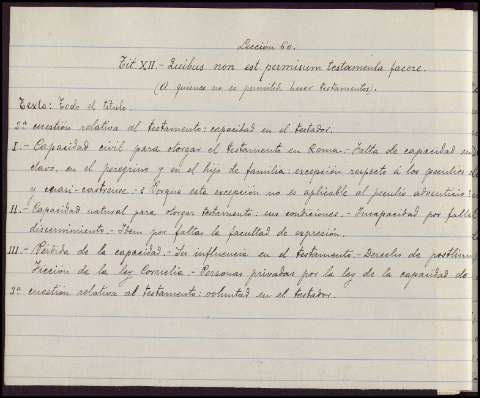 Lección 60.
Tít. XII.- Quibus non est permisum testamenta facere.
(A quienes no es permitido hacer testamentos).
Texto: Todo el título.
2ª cuestión relativa al testamento: capacidad en el testador.
I.- Capacidad civil para otorgar el testamento en Roma.- Falta de capacidad en
clavo, en el peregrino y en el hijo de familia: excepción respecto á los peculios
y cuasi-castrense: ¿Porque esta excepción no es aplicable al peculio adventicio?
II.- Capacidad natural para otorgar testamento: sus condiciones.- Incapacidad por falta
discernimiento.- Idem por faltar la facultad de expresión.
III.- Pérdida de la capacidad.- Su influencia en el testamento.- Derecho de
Ficción de la ley Cornelia.- Personas privadas por la ley de la capacidad de
3ª cuestión relativa al testamento: voluntad en el testador.